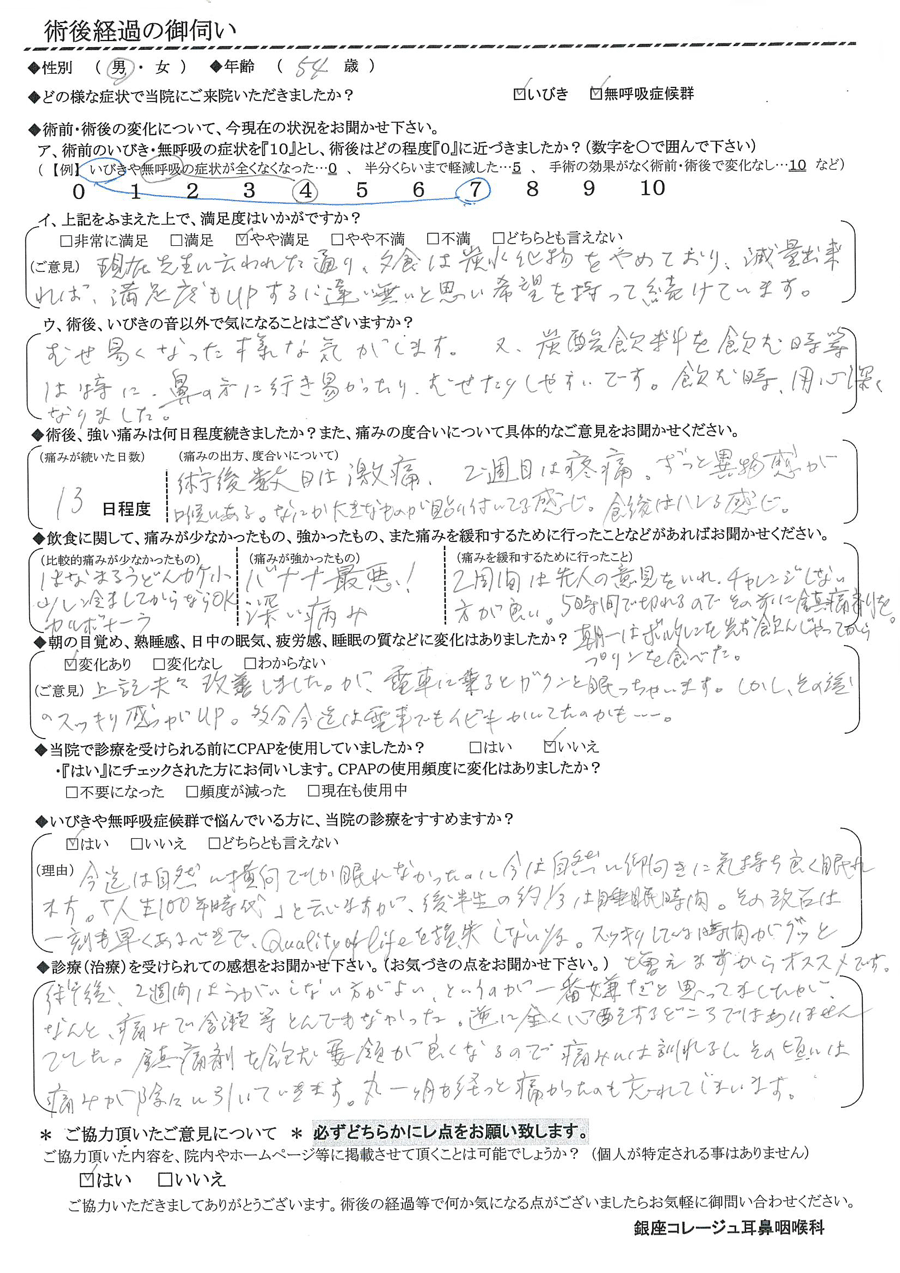 術後経過の御伺い
◆性別 （ 男 ・ 女 ） ◆年齢 （ 54 歳 ）
◆どの様な症状で当院にご来院いただきましたか？ ☑いびき ☑無呼吸症候群
◆術前・術後の変化について、今現在の状況をお聞かせ下さい。
ア、術前のいびき・無呼吸の症状を『10』とし、術後はどの程度『0』に近づきましたか？（数字を○で囲んで下さい）
（【例】 いびきや無呼吸の症状が全くなくなった…0 、 半分くらいまで軽減した…5 、 手術の効果がなく術前・術後で変化なし…10 など）
0 1 2 3 4 5 6 7 8 9 10
イ、上記をふまえた上で、満足度はいかがですか？
□非常に満足 □満足 ☑やや満足 □やや不満 □不満 □どちらとも言えない
（ご意見） 現在先生に云われた通り、夕食は炭水化物をやめており、減量出来
れば、満足度もUPするに違い無いと思い希望を持って続けています。
ウ、術後、いびきの音以外で気になることはございますか？
むせ易くなった様な気がします。 又、炭酸飲料を飲む時等
は特に、鼻の方に行き易かったり、むせたりしやすいです。飲む時、用心深く
なりました。
◆術後、強い痛みは何日程度続きましたか？また、痛みの度合いについて具体的なご意見をお聞かせください。
（痛みが続いた日数） （痛みの出方、度合いについて）
13 日程度
術後数日は激痛、2週目は疼痛。ずっと異物感が
喉にある。なにか大きなものが貼り付いてる感じ。食後はハレる感じ。
◆飲食に関して、痛みが少なかったもの、強かったもの、また痛みを緩和するために行ったことなどがあればお聞かせください。
（比較的痛みが少なかったもの） （痛みが強かったもの） （痛みを緩和するために行ったこと）
はなまるうどんカケ小
少し冷ましてからならOK
カルボナーラ
バナナ最悪！
深い痛み
2週間は先人の意見をいれ、チャレンジしない
方が良い。5時間で切れるのでその前に鎮痛剤を。
朝一はボルタレンを先ず飲んじゃってから
プリンを食べた。
◆朝の目覚め、熟睡感、日中の眠気、疲労感、睡眠の質などに変化はありましたか？
☑変化あり □変化なし □わからない
（ご意見） 上記夫々改善しました。が、電車に乗るとガクンと眠っちゃいます。しかし、その後
のスッキリ感がUP。多分今迄は電車でもイビキかいてたのかも…。
◆当院で診療を受けられる前にCPAPを使用していましたか？ □はい ☑いいえ
・『はい』にチェックされた方にお伺いします。CPAPの使用頻度に変化はありましたか？
□不要になった □頻度が減った □現在も使用中
◆いびきや無呼吸症候群で悩んでいる方に、当院の診療をすすめますか？
☑はい □いいえ □どちらとも言えない
（理由） 今迄は自然に横向でしか眠れなかったのに今は自然に仰向きに気持ち良く眠れ
ます。「人生100年時代」と云いますが、後半生の約1/3は睡眠時間。その改善は
一刻も早くあるべきで、Quality of lifeを損失しない。スッキリしている時間がグッと
増えますからオススメです。
◆診療（治療）を受けられての感想をお聞かせ下さい。（お気づきの点をお聞かせ下さい。）
術後、2週間はうがいしない方がよい、というのが一番嫌だと思ってましたが、
なんと、痛みで含嗽等とんでもなかった。逆に全く心配をするどころではありません
でした。鎮痛剤を飲む要領が良くなるので痛みには訓れるし、その頃には
痛みが徐々に引いていきます。丸一ヶ月も経っと痛かったのも忘れてしまいます。
＊ ご協力頂いたご意見について ＊ 必ずどちらかにレ点をお願い致します。
ご協力頂いた内容を、院内やホームページ等に掲載させて頂くことは可能でしょうか？ （個人が特定される事はありません）
☑はい □いいえ
ご協力いただきましてありがとうございます。術後の経過等で何か気になる点がございましたらお気軽に御問い合わせください。
銀座コレージュ耳鼻咽喉科